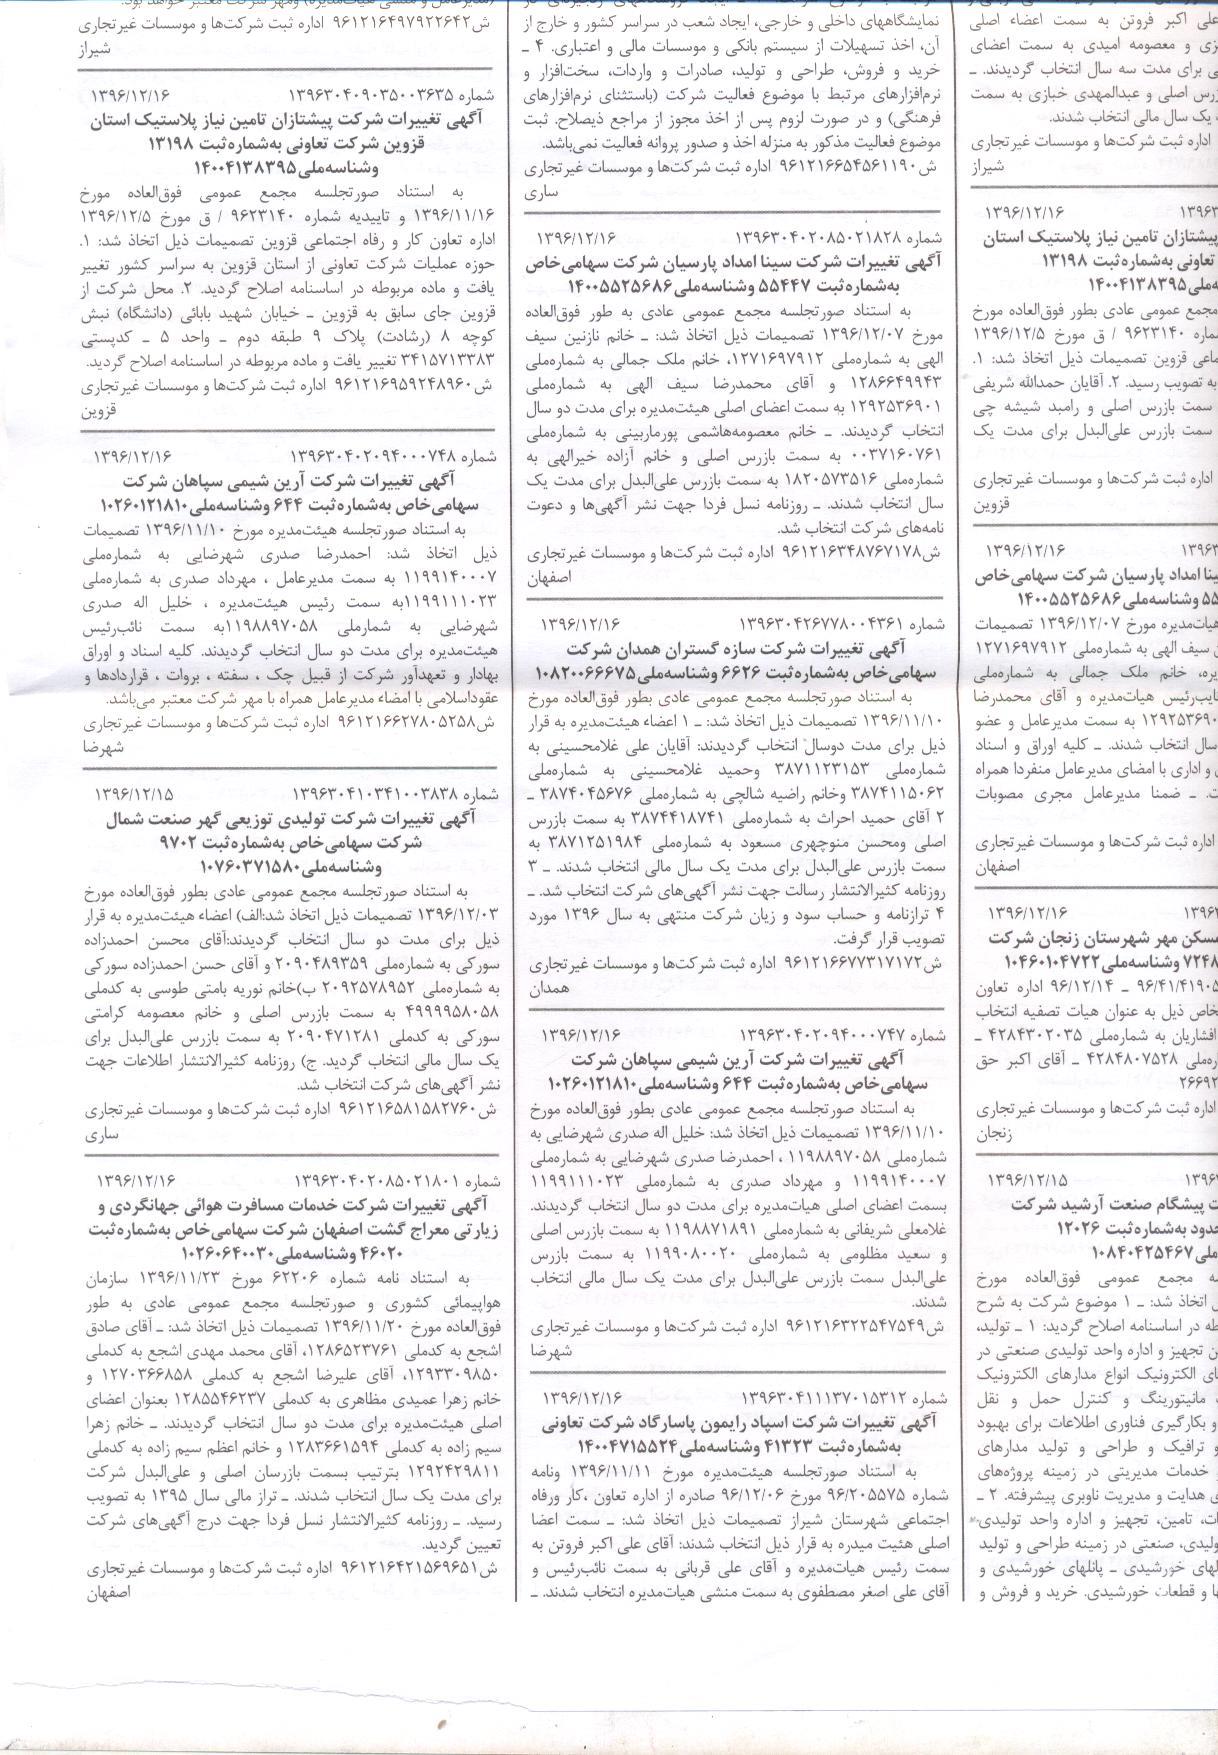 علی اکبر فروتن به سمت اعضاء اصلی
زی و معصومه امیدی به سمت اعضای
ی برای مدت سه سال انتخاب گردیدند. ـ
زرس اصلی و عبدالمهدی خبازی به سمت
، یک سال مالی انتخاب شدند.
اداره ثبت شرکت‌ها و موسسات غیرتجاری
شیراز
۱۳۹۶۳ ۱۳۹۶/۱۲/۱۶
پیشتازان تامین نیاز پلاستیک استان
تعاونی به‌شماره‌ثبت ۱۳۱۹۸
ه‌ملی۱۴۰۰۴۱۳۸۳۹۵
مجمع عمومی عادی بطور فوق‌العاده مورخ
ماره ۹۶۲۳۱۴۰ / ق مورخ ۱۳۹۶/۱۲/۵
ماعی قزوین تصمیمات ذیل اتخاذ شد: ۱.
به تصویب رسید. ۲. آقایان حمدالله شریفی
سمت بازرس اصلی و رامبد شیشه چی
سمت بازرس علی‌البدل برای مدت یک
اداره ثبت شرکت‌ها و موسسات غیرتجاری
قزوین
۱۳۹۶۳ ۱۳۹۶/۱۲/۱۶
سینا امداد پارسیان شرکت سهامی‌خاص
۵۵ وشناسه‌ملی۱۴۰۰۵۵۲۵۶۸۶
هیات‌مدیره مورخ ۱۳۹۶/۱۲/۰۷ تصمیمات
ن سیف الهی به شماره‌ملی ۱۲۷۱۶۹۷۹۱۲
یره، خانم ملک جمالی به شماره‌ملی
نایب‌رئیس هیات‌مدیره و آقای محمدرضا
۱۲۹۲۵۳۶۹۰ به سمت مدیرعامل و عضو
سال انتخاب شدند. ـ کلیه اوراق و اسناد
ی و اداری با امضای مدیرعامل منفردا همراه
ت. ـ ضمنا مدیرعامل مجری مصوبات
اداره ثبت شرکت‌ها و موسسات غیرتجاری
اصفهان
۱۳۹۶ ۱۳۹۶/۱۲/۱۶
مسکن مهر شهرستان زنجان شرکت
۷۲۴۸ وشناسه‌ملی۱۰۴۶۰۱۰۴۷۲۲
۹۶/۴۱/۴۱۹۰۵ ـ ۹۶/۱۲/۱۴ اداره تعاون
خاص ذیل به عنوان هیات تصفیه انتخاب
افشاریان به شماره‌ملی ۴۲۸۴۳۰۲۰۳۵ ـ
ره‌ملی ۴۲۸۴۸۰۷۵۲۸ ـ آقای اکبر حق
۲۶۶۹۲
اداره ثبت شرکت‌ها و موسسات غیرتجاری
زنجان
۱۳۹۶ ۱۳۹۶/۱۲/۱۵
ت پیشگام صنعت آرشید شرکت
حدود به‌شماره‌ثبت ۱۲۰۲۶
ه‌ملی۱۰۸۴۰۴۲۵۴۶۷
سه مجمع عمومی فوق‌العاده مورخ
ل اتخاذ شد: ـ ۱ موضوع شرکت به شرح
طه در اساسنامه اصلاح گردید: ۱ ـ تولید،
ن تجهیز و اداره واحد تولیدی صنعتی در
ای الکترونیک انواع مدارهای الکترونیک
، مانیتورینگ و کنترل حمل و نقل
و بکارگیری فناوری اطلاعات برای بهبود
و ترافیک و طراحی و تولید مدارهای
، خدمات مدیریتی در زمینه پروژه‌های
ی هدایت و مدیریت ناوبری پیشرفته. ۲ ـ
ات، تامین، تجهیز و اداره واحد تولیدی
ولیدی، صنعتی در زمینه طراحی و تولید
لهای خورشیدی ـ پانلهای خورشیدی و
ها و قطعات خورشیدی. خرید و فروش و
نمایشگاههای داخلی و خارجی، ایجاد شعب در سراسر کشور و خارج از
آن، اخذ تسهیلات از سیستم بانکی و موسسات مالی و اعتباری. ۴ ـ
خرید و فروش، طراحی و تولید، صادرات و واردات، سخت‌افزار و
نرم‌افزارهای مرتبط با موضوع فعالیت شرکت (باستثنای نرم‌افزارهای
فرهنگی) و در صورت لزوم پس از اخذ مجوز از مراجع ذیصلاح. ثبت
موضوع فعالیت مذکور به منزله اخذ و صدور پروانه فعالیت نمی‌باشد.
ش۹۶۱۲۱۶۶۵۴۵۶۱۱۹۰ اداره ثبت شرکت‌ها و موسسات غیرتجاری
ساری
شماره ۱۳۹۶۳۰۴۰۲۰۸۵۰۲۱۸۲۸ ۱۳۹۶/۱۲/۱۶
آگهی تغییرات شرکت سینا امداد پارسیان شرکت سهامی‌خاص
به‌شماره‌ثبت ۵۵۴۴۷ وشناسه‌ملی۱۴۰۰۵۵۲۵۶۸۶
به استناد صورتجلسه مجمع عمومی عادی به طور فوق‌العاده
مورخ ۱۳۹۶/۱۲/۰۷ تصمیمات ذیل اتخاذ شد: ـ خانم نازنین سیف
الهی به شماره‌ملی ۱۲۷۱۶۹۷۹۱۲، خانم ملک جمالی به شماره‌ملی
۱۲۸۶۶۴۹۹۴۳ و آقای محمدرضا سیف الهی به شماره‌ملی
۱۲۹۲۵۳۶۹۰۱ به سمت اعضای اصلی هیئت‌مدیره برای مدت دو سال
انتخاب گردیدند. ـ خانم معصومه‌هاشمی پورماربینی به شماره‌ملی
۰۰۳۷۱۶۰۷۶۱ به سمت بازرس اصلی و خانم آزاده خیرالهی به
شماره‌ملی ۱۸۲۰۵۷۳۵۱۶ به سمت بازرس علی‌البدل برای مدت یک
سال انتخاب شدند. ـ روزنامه نسل فردا جهت نشر آگهی‌ها و دعوت
نامه‌های شرکت انتخاب شد.
ش۹۶۱۲۱۶۳۴۸۷۶۷۱۷۸ اداره ثبت شرکت‌ها و موسسات غیرتجاری
اصفهان
شماره ۱۳۹۶۳۰۴۲۶۷۷۸۰۰۴۳۶۱ ۱۳۹۶/۱۲/۱۶
آگهی تغییرات شرکت سازه گستران همدان شرکت
سهامی‌خاص به‌شماره‌ثبت ۶۶۲۶ وشناسه‌ملی۱۰۸۲۰۰۶۶۶۷۵
به استناد صورتجلسه مجمع عمومی عادی بطور فوق‌العاده مورخ
۱۳۹۶/۱۱/۱۰ تصمیمات ذیل اتخاذ شد: ـ ۱ اعضاء هیئت‌مدیره به قرار
ذیل برای مدت دوسال انتخاب گردیدند: آقایان علی غلامحسینی به
شماره‌ملی ۳۸۷۱۱۲۳۱۵۳ وحمید غلامحسینی به شماره‌ملی
۳۸۷۴۱۱۵۰۶۲ وخانم راضیه شالچی به شماره‌ملی ۳۸۷۴۰۴۵۶۷۶ ـ
۲ آقای حمید احراث به شماره‌ملی ۳۸۷۴۴۱۸۷۴۱ به سمت بازرس
اصلی ومحسن منوچهری مسعود به شماره‌ملی ۳۸۷۱۲۵۱۹۸۴ به
سمت بازرس علی‌البدل برای مدت یک سال مالی انتخاب شدند. ـ ۳
روزنامه کثیرالانتشار رسالت جهت نشر آگهی‌های شرکت انتخاب شد. ـ
۴ ترازنامه و حساب سود و زیان شرکت منتهی به سال ۱۳۹۶ مورد
تصویب قرار گرفت.
ش۹۶۱۲۱۶۶۷۷۳۱۷۱۷۲ اداره ثبت شرکت‌ها و موسسات غیرتجاری
همدان
شماره ۱۳۹۶۳۰۴۰۲۰۹۴۰۰۰۷۴۷ ۱۳۹۶/۱۲/۱۶
آگهی تغییرات شرکت آرین شیمی سپاهان شرکت
سهامی‌خاص به‌شماره‌ثبت ۶۴۴ وشناسه‌ملی۱۰۲۶۰۱۲۱۸۱۰
به استناد صورتجلسه مجمع عمومی عادی بطور فوق‌العاده مورخ
۱۳۹۶/۱۱/۱۰ تصمیمات ذیل اتخاذ شد: خلیل اله صدری شهرضایی به
شماره‌ملی ۱۱۹۸۸۹۷۰۵۸ ، احمدرضا صدری شهرضایی به شماره‌ملی
۱۱۹۹۱۴۰۰۰۷ و مهرداد صدری به شماره‌ملی ۱۱۹۹۱۱۱۰۲۳
بسمت اعضای اصلی هیات‌مدیره برای مدت دو سال انتخاب گردیدند.
غلامعلی شریفانی به شماره‌ملی ۱۱۹۸۸۷۱۸۹۱ به سمت بازرس اصلی
و سعید مظلومی به شماره‌ملی ۱۱۹۹۰۸۰۰۲۰ به سمت بازرس
علی‌البدل سمت بازرس علی‌البدل برای مدت یک سال مالی انتخاب
شدند.
ش۹۶۱۲۱۶۳۲۲۵۴۷۵۴۹ اداره ثبت شرکت‌ها و موسسات غیرتجاری
شهرضا
شماره ۱۳۹۶۳۰۴۱۱۱۳۷۰۱۵۳۱۲ ۱۳۹۶/۱۲/۱۶
آگهی تغییرات شرکت اسپاد رایمون پاسارگاد شرکت تعاونی
به‌شماره‌ثبت ۴۱۳۲۳ وشناسه‌ملی۱۴۰۰۴۷۱۵۵۲۴
به استناد صورتجلسه هیئت‌مدیره مورخ ۱۳۹۶/۱۱/۱۱ ونامه
شماره ۹۶/۲۰۵۵۷۵ مورخ ۹۶/۱۲/۰۶ صادره از اداره تعاون ،کار ورفاه
اجتماعی شهرستان شیراز تصمیمات ذیل اتخاذ شد: ـ سمت اعضا
اصلی هئیت میدره به قرار ذیل انتخاب شدند: آقای علی اکبر فروتن به
سمت رئیس هیات‌مدیره و آقای علی قربانی به سمت نائب‌رئیس و
آقای علی اصغر مصطفوی به سمت منشی هیات‌مدیره انتخاب شدند. ـ
ش۹۶۱۲۱۶۴۹۷۹۲۲۶۴۲ اداره ثبت شرکت‌ها و موسسات غیرتجاری
شیراز
شماره ۱۳۹۶۳۰۴۰۹۰۳۵۰۰۳۶۳۵ ۱۳۹۶/۱۲/۱۶
آگهی تغییرات شرکت پیشتازان تامین نیاز پلاستیک استان
قزوین شرکت تعاونی به‌شماره‌ثبت ۱۳۱۹۸
وشناسه‌ملی۱۴۰۰۴۱۳۸۳۹۵
به استناد صورتجلسه مجمع عمومی فوق‌العاده مورخ
۱۳۹۶/۱۱/۱۶ و تاییدیه شماره ۹۶۲۳۱۴۰ / ق مورخ ۱۳۹۶/۱۲/۵
اداره تعاون کار و رفاه اجتماعی قزوین تصمیمات ذیل اتخاذ شد: ۱.
حوزه عملیات شرکت تعاونی از استان قزوین به سراسر کشور تغییر
یافت و ماده مربوطه در اساسنامه اصلاح گردید. ۲. محل شرکت از
قزوین جای سابق به قزوین ـ خیابان شهید بابائی (دانشگاه) نبش
کوچه ۸ (رشادت) پلاک ۹ طبقه دوم ـ واحد ۵ ـ کدپستی
۳۴۱۵۷۱۳۳۸۳ تغییر یافت و ماده مربوطه در اساسنامه اصلاح گردید.
ش۹۶۱۲۱۶۹۵۹۲۴۸۹۶۰ اداره ثبت شرکت‌ها و موسسات غیرتجاری
قزوین
شماره ۱۳۹۶۳۰۴۰۲۰۹۴۰۰۰۷۴۸ ۱۳۹۶/۱۲/۱۶
آگهی تغییرات شرکت آرین شیمی سپاهان شرکت
سهامی‌خاص به‌شماره‌ثبت ۶۴۴ وشناسه‌ملی۱۰۲۶۰۱۲۱۸۱۰
به استناد صورتجلسه هیئت‌مدیره مورخ ۱۳۹۶/۱۱/۱۰ تصمیمات
ذیل اتخاذ شد: احمدرضا صدری شهرضایی به شماره‌ملی
۱۱۹۹۱۴۰۰۰۷ به سمت مدیرعامل ، مهرداد صدری به شماره‌ملی
۱۱۹۹۱۱۱۰۲۳به سمت رئیس هیئت‌مدیره ، خلیل اله صدری
شهرضایی به شمارملی ۱۱۹۸۸۹۷۰۵۸به سمت نائب‌رئیس
هیئت‌مدیره برای مدت دو سال انتخاب گردیدند. کلیه اسناد و اوراق
بهادار و تعهدآور شرکت از قبیل چک ، سفته ، بروات ، قراردادها و
عقوداسلامی با امضاء مدیرعامل همراه با مهر شرکت معتبر می‌باشد.
ش۹۶۱۲۱۶۶۲۷۸۰۵۲۵۸ اداره ثبت شرکت‌ها و موسسات غیرتجاری
شهرضا
شماره ۱۳۹۶۳۰۴۱۰۳۴۱۰۰۳۸۳۸ ۱۳۹۶/۱۲/۱۵
آگهی تغییرات شرکت تولیدی توزیعی گهر صنعت شمال
شرکت سهامی‌خاص به‌شماره‌ثبت ۹۷۰۲
وشناسه‌ملی۱۰۷۶۰۳۷۱۵۸۰
به استناد صورتجلسه مجمع عمومی عادی بطور فوق‌العاده مورخ
۱۳۹۶/۱۲/۰۳ تصمیمات ذیل اتخاذ شد:الف) اعضاء هیئت‌مدیره به قرار
ذیل برای مدت دو سال انتخاب گردیدند:آقای محسن احمدزاده
سورکی به شماره‌ملی ۲۰۹۰۴۸۹۳۵۹ و آقای حسن احمدزاده سورکی
به شماره‌ملی ۲۰۹۲۵۷۸۹۵۲ ب)خانم نوریه بامتی طوسی به کدملی
۴۹۹۹۹۵۸۰۵۸ به سمت بازرس اصلی و خانم معصومه کرامتی
سورکی به کدملی ۲۰۹۰۴۷۱۲۸۱ به سمت بازرس علی‌البدل برای
یک سال مالی انتخاب گردید. ج) روزنامه کثیرالانتشار اطلاعات جهت
نشر آگهی‌های شرکت انتخاب شد.
ش۹۶۱۲۱۶۵۸۱۵۸۲۷۶۰ اداره ثبت شرکت‌ها و موسسات غیرتجاری
ساری
شماره ۱۳۹۶۳۰۴۰۲۰۸۵۰۲۱۸۰۱ ۱۳۹۶/۱۲/۱۶
آگهی تغییرات شرکت خدمات مسافرت هوائی جهانگردی و
زیارتی معراج گشت اصفهان شرکت سهامی‌خاص به‌شماره‌ثبت
۴۶۰۲۰ وشناسه‌ملی۱۰۲۶۰۶۴۰۰۳۰
به استناد نامه شماره ۶۲۲۰۶ مورخ ۱۳۹۶/۱۱/۲۳ سازمان
هواپیمائی کشوری و صورتجلسه مجمع عمومی عادی به طور
فوق‌العاده مورخ ۱۳۹۶/۱۱/۲۰ تصمیمات ذیل اتخاذ شد: ـ آقای صادق
اشجع به کدملی ۱۲۸۶۵۲۳۷۶۱، آقای محمد مهدی اشجع به کدملی
۱۲۹۳۳۰۹۸۵۰، آقای علیرضا اشجع به کدملی ۱۲۷۰۳۶۶۸۵۸ و
خانم زهرا عمیدی مظاهری به کدملی ۱۲۸۵۵۴۶۲۳۷ بعنوان اعضای
اصلی هیئت‌مدیره برای مدت دو سال انتخاب گردیدند. ـ خانم زهرا
سیم زاده به کدملی ۱۲۸۳۶۶۱۵۹۴ و خانم اعظم سیم زاده به کدملی
۱۲۹۲۴۲۹۸۱۱ بترتیب بسمت بازرسان اصلی و علی‌البدل شرکت
برای مدت یک سال انتخاب شدند. ـ تراز مالی سال ۱۳۹۵ به تصویب
رسید. ـ روزنامه کثیرالانتشار نسل فردا جهت درج آگهی‌های شرکت
تعیین گردید.
ش۹۶۱۲۱۶۴۲۱۵۶۹۶۵۱ اداره ثبت شرکت‌ها و موسسات غیرتجاری
اصفهان